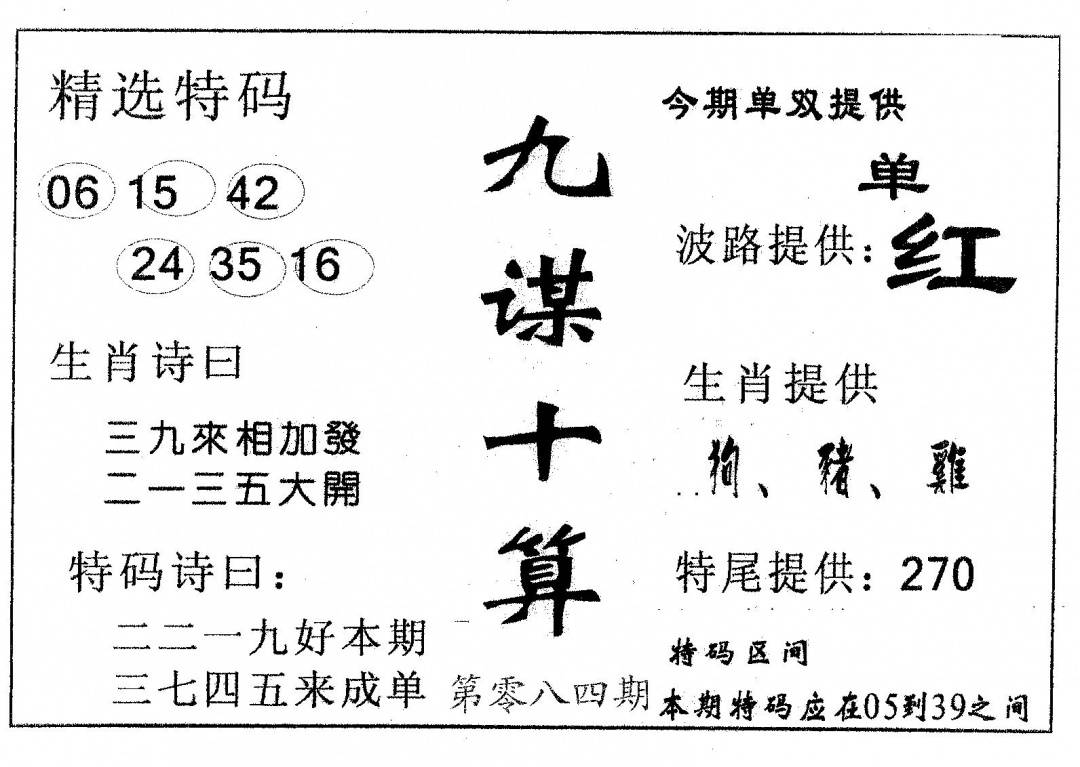 精选特码
06 15 42
24 35 16
生肖诗曰
三九來相加發
二一三五大開
特码诗曰：
二二一九好本期
三七四五来成单
九谋十算
第零八四期
今期单双提供
单
波路提供：红
生肖提供
狗、豬、雞
特尾提供：270
特码区间
本期特码应在05到39之间